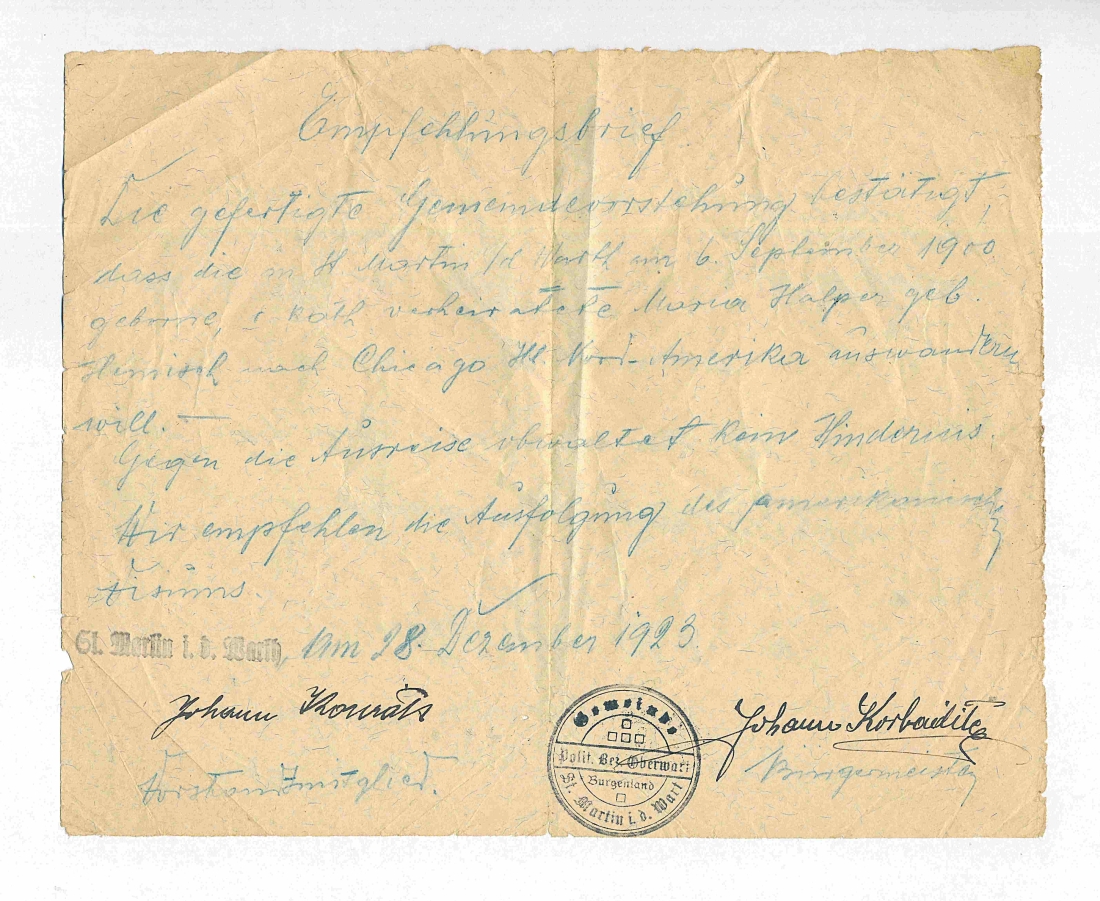 Empfehlungsbrief
Die gefertigte Gemeindevorstehung bestätigt,
dass die in St. Martin i/d Warth am 6. September 1900
geborne, r. kath. verheiratete Maria Halper geb.
nach Chicago Ill. Nord-Amerika auswandern
will. —
Gegen die Ausreise obwaltet kein Hindernis.
Wir empfehlen die Ausfolgung des amerikanischen
Visums.
St. Martin i. d. Warth, Am 28. Dezember 1923.
Johann Johann
Vorstandsmitglied. Bürgermeister
Gemeinde
Polit. Bez. Oberwart
Burgenland
St. Martin i. d. Wart